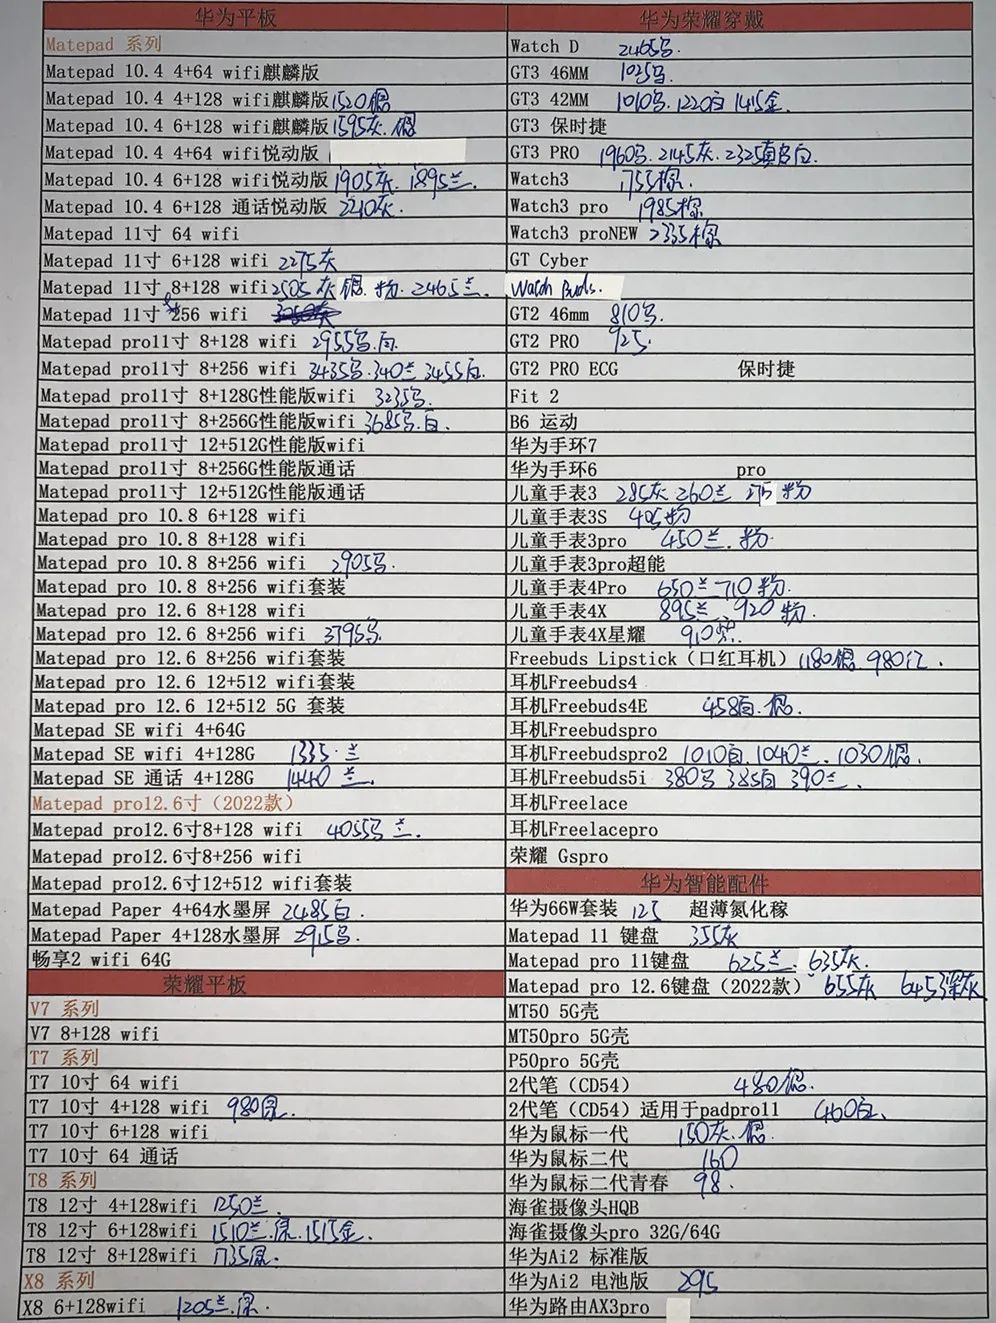 华为平板
Matepad 系列
Matepad 10.4 4+64 wifi麒麟版
Matepad 10.4 4+128 wifi麒麟版 1520银
Matepad 10.4 6+128 wifi麒麟版 1595灰.银
Matepad 10.4 4+64 wifi悦动版
Matepad 10.4 6+128 wifi悦动版 1905灰. 1895兰.
Matepad 10.4 6+128 通话悦动版 2210灰.
Matepad 11寸 64 wifi
Matepad 11寸 6+128 wifi 2275灰
Matepad 11寸 8+128 wifi 2505灰 银 粉. 2465兰.
Matepad 11寸 256 wifi
Matepad pro11寸 8+128 wifi 2955黑.白.
Matepad pro11寸 8+256 wifi 3435黑.340兰 3455白.
Matepad pro11寸 8+128G性能版wifi 3235黑.
Matepad pro11寸 8+256G性能版wifi 3685黑.白.
Matepad pro11寸 12+512G性能版wifi
Matepad pro11寸 8+256G性能版通话
Matepad pro11寸 12+512G性能版通话
Matepad pro 10.8 6+128 wifi
Matepad pro 10.8 8+128 wifi
Matepad pro 10.8 8+256 wifi 2905黑.
Matepad pro 10.8 8+256 wifi套装
Matepad pro 12.6 8+128 wifi
Matepad pro 12.6 8+256 wifi 3795黑
Matepad pro 12.6 8+256 wifi套装
Matepad pro 12.6 12+512 wifi套装
Matepad pro 12.6 12+512 5G 套装
Matepad SE wifi 4+64G
Matepad SE wifi 4+128G 1335.兰
Matepad SE 通话 4+128G 1440 兰.
Matepad pro12.6寸（2022款）
Matepad pro12.6寸8+128 wifi 4055黑 兰.
Matepad pro12.6寸8+256 wifi
Matepad pro12.6寸12+512 wifi套装
Matepad Paper 4+64水墨屏 2485白.
Matepad Paper 4+128水墨屏 2915黑.
畅享2 wifi 64G
荣耀平板
V7 系列
V7 8+128 wifi
T7 系列
T7 10寸 64 wifi
T7 10寸 4+128 wifi 980
T7 10寸 6+128 wifi
T7 10寸 64 通话
T8 系列
T8 12寸 4+128wifi 1250兰.
T8 12寸 6+128wifi 1510兰. 1515金.
T8 12寸 8+128wifi 1735
X8 系列
X8 6+128wifi 1205兰.
华为荣耀穿戴
Watch D 2465黑.
GT3 46MM 1025黑.
GT3 42MM 1010黑.1220白 1415金.
GT3 保时捷
GT3 PRO 1960黑.2145灰.2325真白.
Watch3 1755棕.
Watch3 pro 1985棕
Watch3 proNEW 2335棕
GT Cyber
Watch Buds.
GT2 46mm 810黑.
GT2 PRO 925.
GT2 PRO ECG 保时捷
Fit 2
B6 运动
华为手环7
华为手环6 pro
儿童手表3 285灰 260兰 275 粉
儿童手表3S 405粉
儿童手表3pro 450兰.粉.
儿童手表3pro超能
儿童手表4Pro 650兰 710粉.
儿童手表4X 895兰.920粉.
儿童手表4X星耀 910紫.
Freebuds Lipstick（口红耳机）1180银.980红.
耳机Freebuds4
耳机Freebuds4E 458白.银.
耳机Freebudspro
耳机Freebudspro2 1010白.1040兰.1030银.
耳机Freebuds5i 380黑 385白 390兰.
耳机Freelace
耳机Freelacepro
荣耀 Gspro
华为智能配件
华为66W套装 125 超薄氮化稼
Matepad 11 键盘 355灰
Matepad pro 11键盘 625兰.635灰.
Matepad pro 12.6键盘（2022款） 655灰 645深灰
MT50 5G壳
MT50pro 5G壳
P50pro 5G壳
2代笔（CD54） 480银.
2代笔（CD54）适用于padpro11 460白.
华为鼠标一代 150灰.银.
华为鼠标二代 160
华为鼠标二代青春 98.
海雀摄像头HQB
海雀摄像头pro 32G/64G
华为Ai2 标准版
华为Ai2 电池版 295
华为路由AX3pro